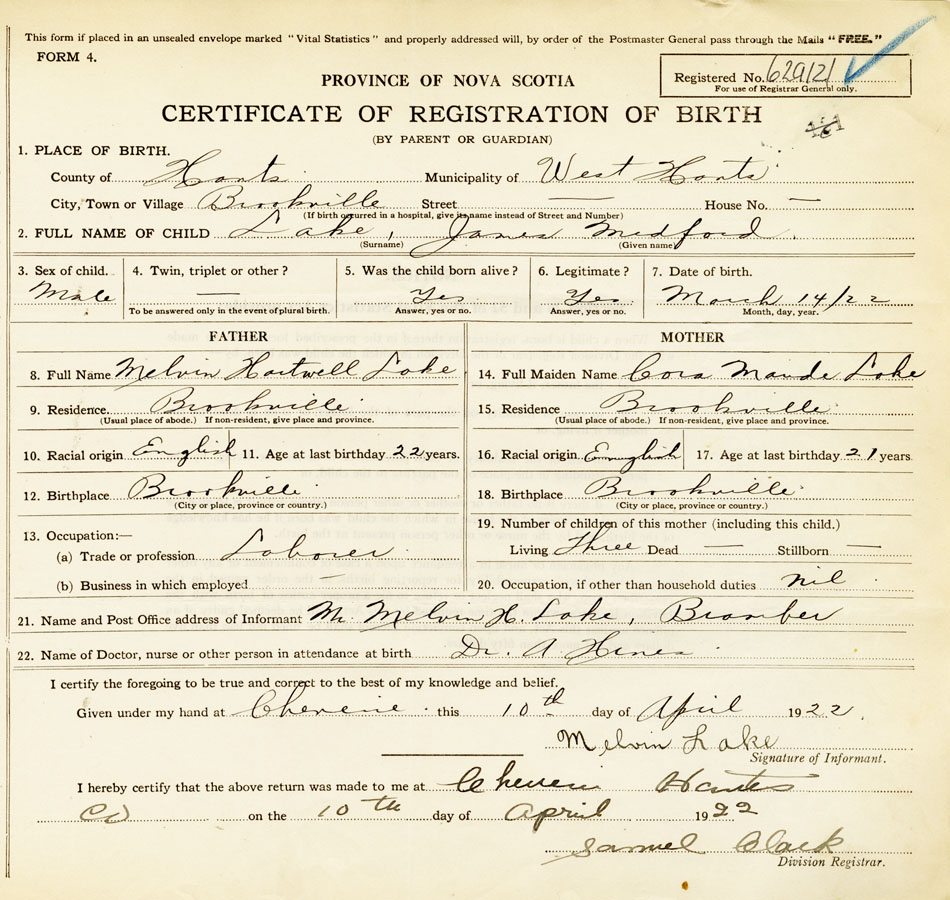 This form if placed in an unsealed envelope marked "Vital Statistics" and properly addressed will, by order of the Postmaster General pass through the Mails "FREE."
FORM 4.
Registered No. 629121
For use of Registrar General only.
PROVINCE OF NOVA SCOTIA
CERTIFICATE OF REGISTRATION OF BIRTH
(BY PARENT OR GUARDIAN)
1. PLACE OF BIRTH.
County of Hants Municipality of West Hants
City, Town or Village Brookville Street — House No. —
(If birth occurred in a hospital, give its name instead of Street and Number)
2. FULL NAME OF CHILD Lake, James Medford.
(Surname) (Given name)
3. Sex of child. 4. Twin, triplet or other? 5. Was the child born alive? 6. Legitimate? 7. Date of birth.
Male — Yes Yes. March 14/22
To be answered only in the event of plural birth. Answer, yes or no. Answer, yes or no. Month, day, year.
FATHER MOTHER
8. Full Name Melvin Hartwell Lake 14. Full Maiden Name Cora Maude Lake
9. Residence. Brookville 15. Residence Brookville
(Usual place of abode.) If non-resident, give place and province. (Usual place of abode.) If non-resident, give place and province.
10. Racial origin English 11. Age at last birthday 22 years. 16. Racial origin English 17. Age at last birthday 21 years
12. Birthplace Brookville 18. Birthplace Brookville
(City or place, province or country.) (City or place, province or country.)
13. Occupation:— 19. Number of children of this mother (including this child.)
(a) Trade or profession Laborer Living Three Dead — Stillborn —
(b) Business in which employed — 20. Occupation, if other than household duties nil
21. Name and Post Office address of Informant Mr. Melvin H. Lake, Bramber
22. Name of Doctor, nurse or other person in attendance at birth Dr. A
I certify the foregoing to be true and correct to the best of my knowledge and belief.
Given under my hand at Cheverie this 10th day of April 1922.
Melvin Lake
Signature of Informant.
I hereby certify that the above return was made to me at Hants
Co on the 10th day of April 1922
Samuel Black
Division Registrar.